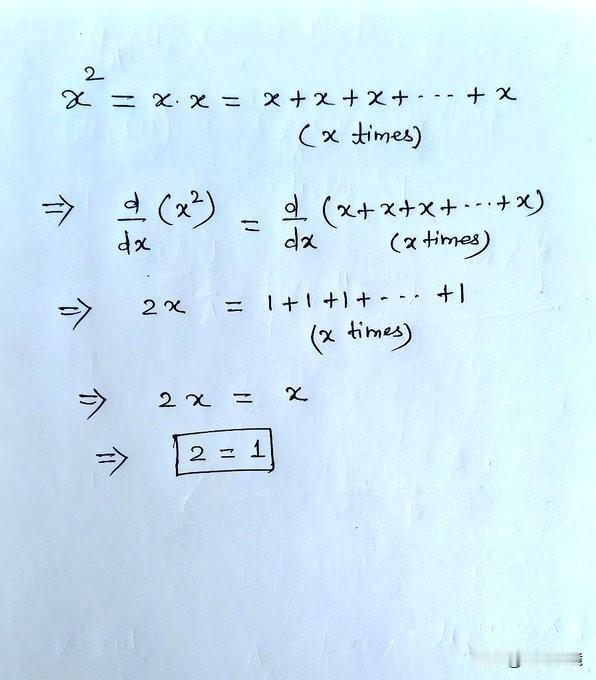 x² = x · x = x + x + x + ---- + x
(x times)
⇒ d/dx (x²) = d/dx (x + x + x + ---- + x)
(x times)
⇒ 2x = 1 + 1 + 1 + ---- + 1
(x times)
⇒ 2x = x
⇒ 2 = 1